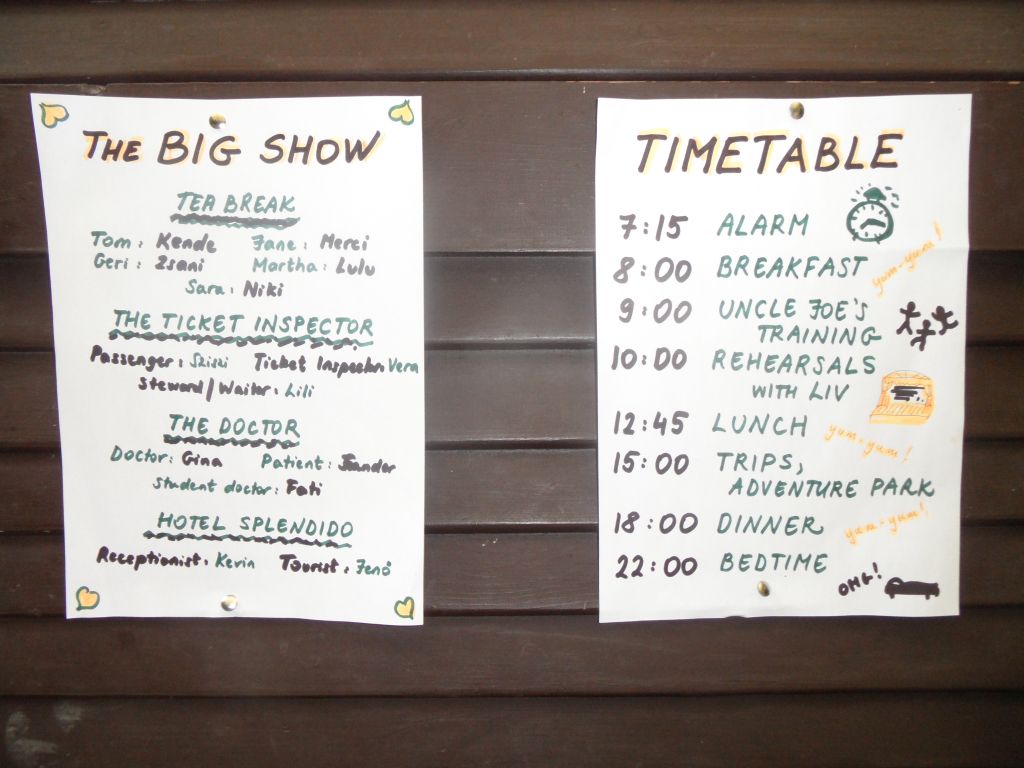 THE BIG SHOW
TEA BREAK
Tom: Kende Jane: Merci
Geri: Zsani Martha: Lulu
Sara: Niki
THE TICKET INSPECTOR
Passenger: Szisi Ticket Inspector: Vera
Steward/Waiter: Lili
THE DOCTOR
Doctor: Gina Patient: Sandor
Student doctor: Fati
HOTEL SPLENDIDO
Receptionist: Kevin Tourist: Jenő
TIMETABLE
7:15 ALARM
8:00 BREAKFAST yum-yum!
9:00 UNCLE JOE'S
TRAINING
10:00 REHEARSALS
WITH LIV
12:45 LUNCH yum-yum!
15:00 TRIPS,
ADVENTURE PARK
18:00 DINNER yum-yum!
22:00 BEDTIME
OMG!